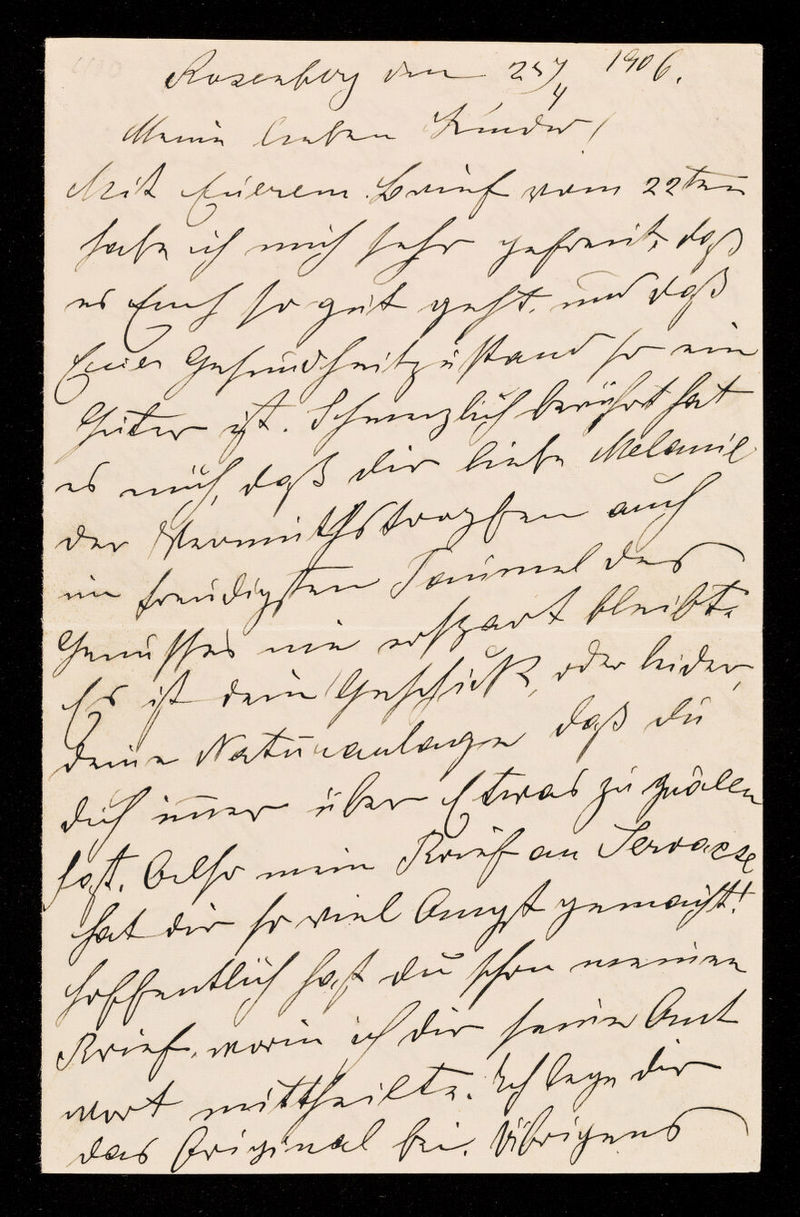 Rosenberg den 25/4 1906.
Meine lieben Kinder!
Mit Euerem Brief vom 22ten
habe ich mich sehr gefreut, daß
es Euch so gut geht. und daß
Euer Gesundheitzustand so ein
Guter ist. Schmerzlich berührt hat
es mich, daß dir liebe Melanie
der Wermuthstropfen auch
im freudigsten Taumel des
Genusses nie erspart bleibt.
Es ist dein Geschick, oder leider,
deine Naturanlage daß du
dich immer über Etwas zu quälen
hast. Also mein Brief an Servaese
hat dir so viel Angst gemacht!
hoffentlich hast du schon meinen
Brief, worin ich dir seine Ant
wort mittheilte. Ich lege dir
das Original bei. Übrigens